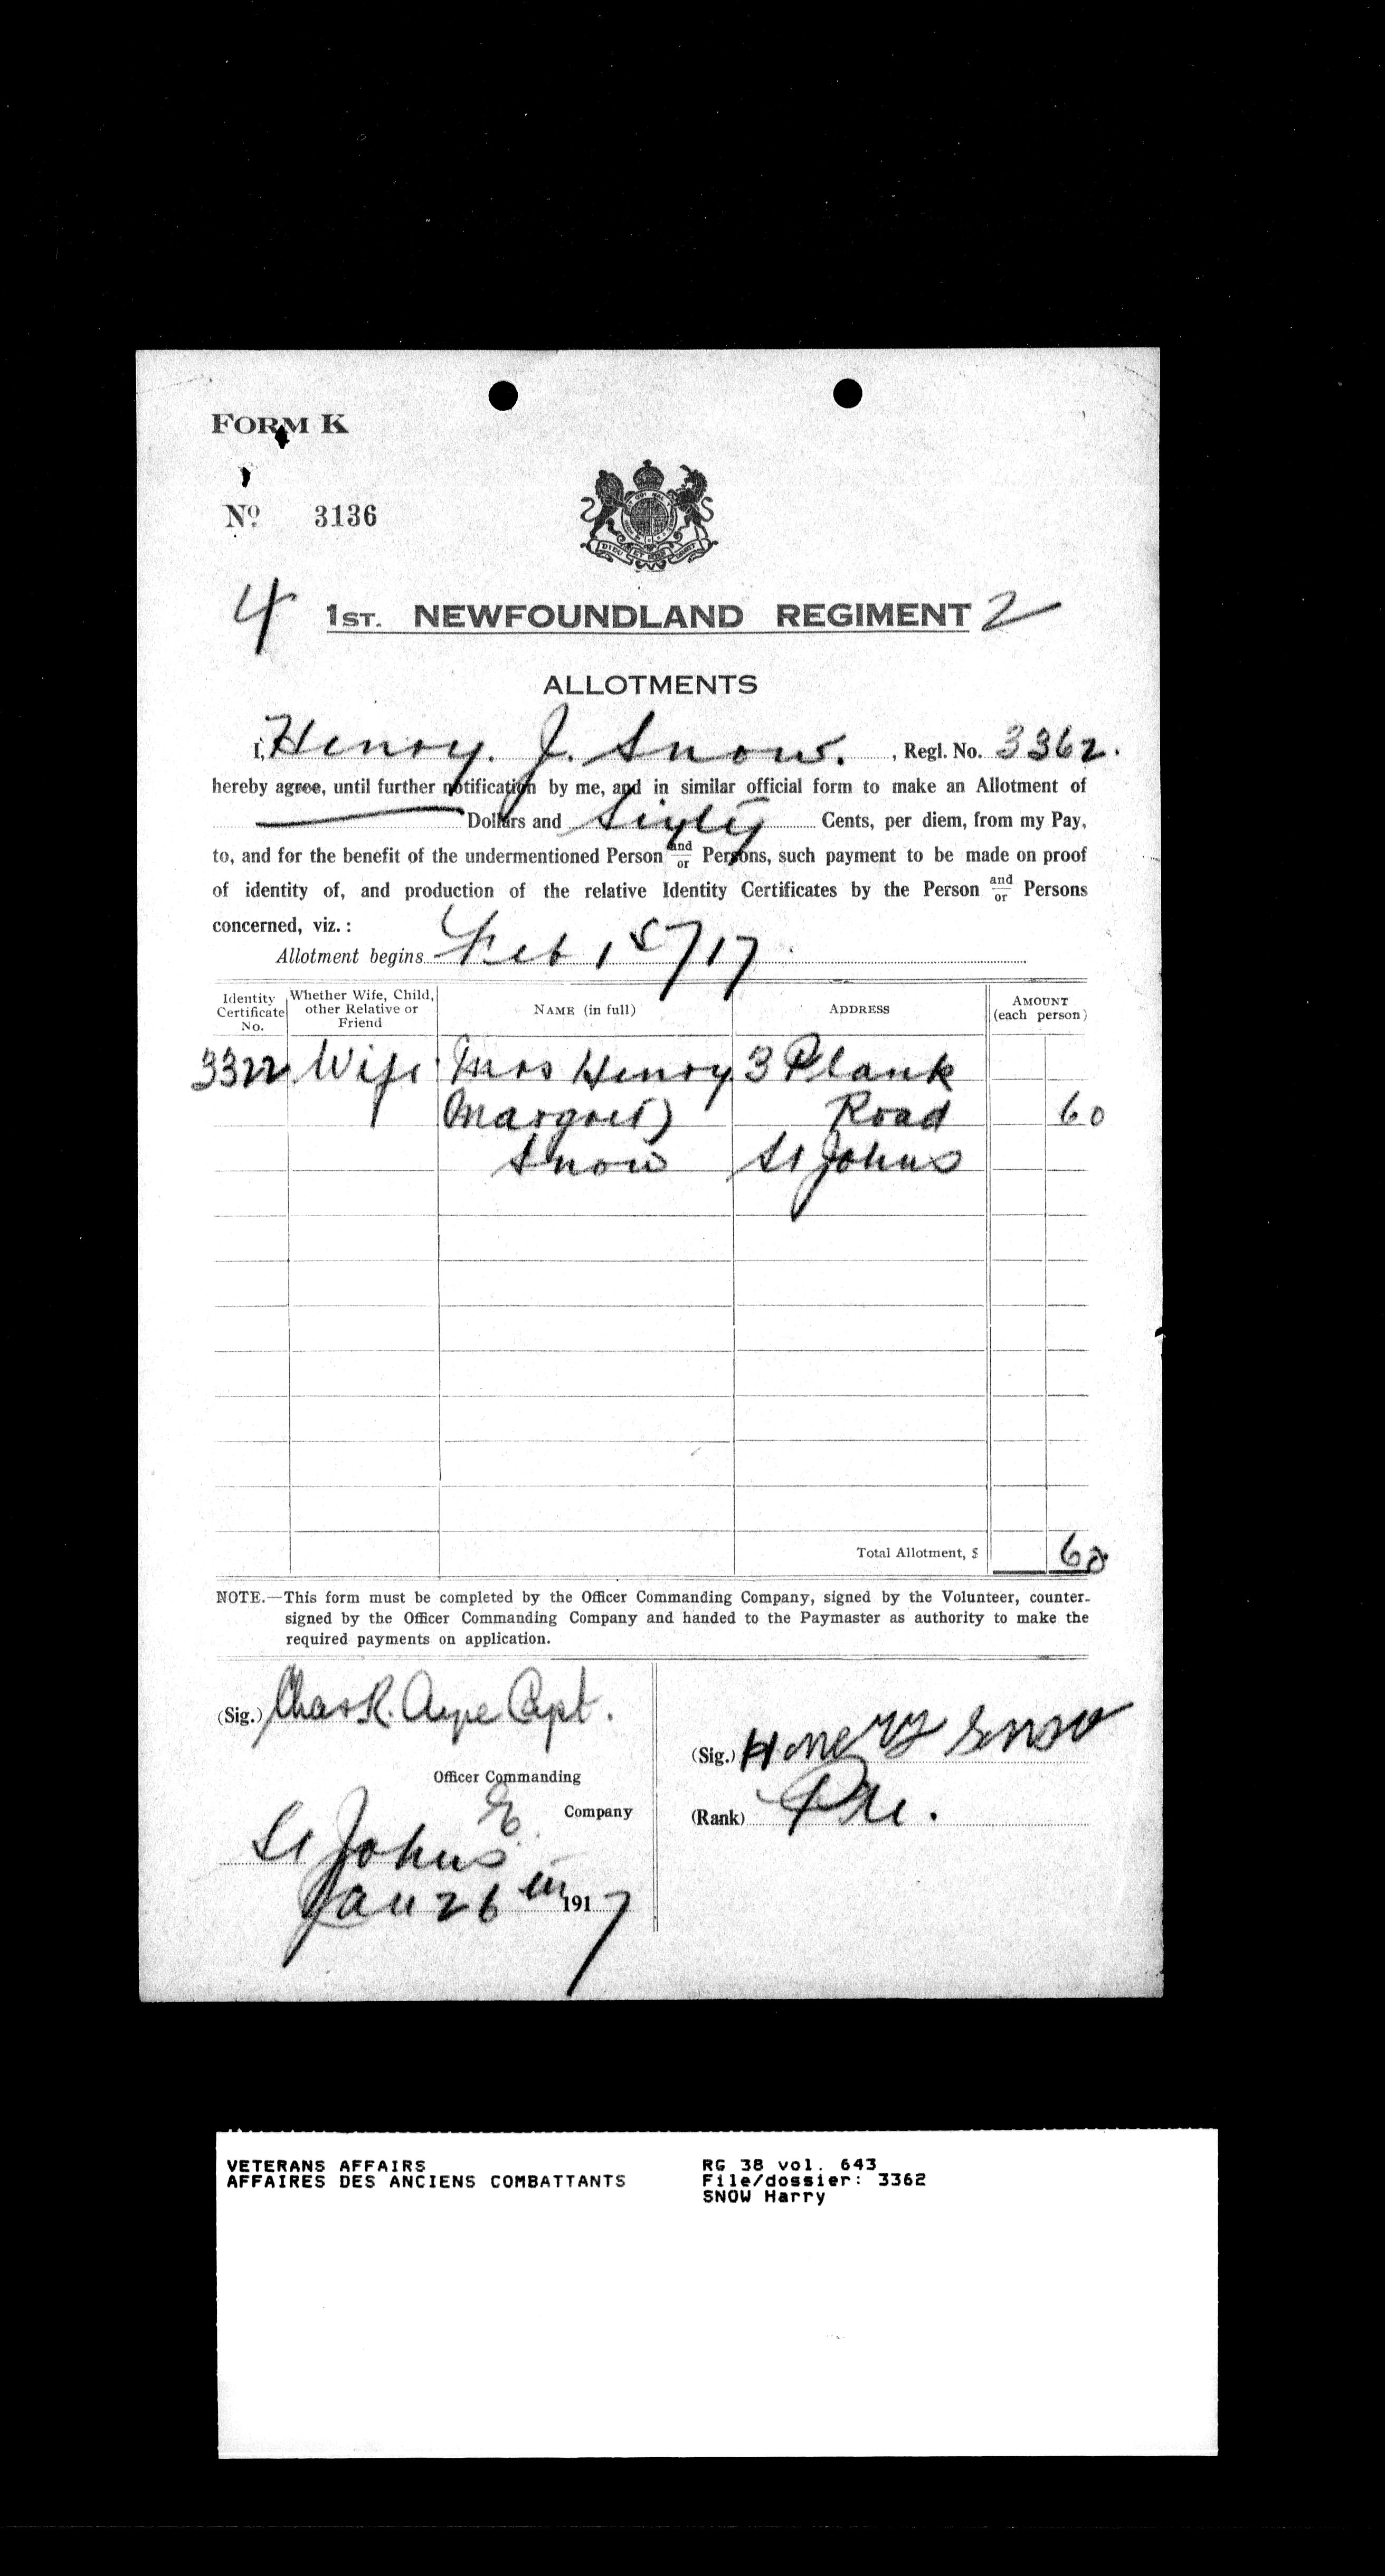 FORM K
No. 3136
4 1ST. NEWFOUNDLAND REGIMENT 2
ALLOTMENTS
I, Henry. J. Snow. , Regl. No. 3362.
hereby agree, until further notification by me, and in similar official form to make an Allotment of
Dollars and Sixty Cents, per diem, from my Pay,
to, and for the benefit of the undermentioned Person and/or Persons, such payment to be made on proof
of identity of, and production of the relative Identity Certificates by the Person and/or Persons
concerned, viz. :
Allotment begins Feb 1st/17
Identity Certificate No. Whether Wife, Child, other Relative or Friend NAME (in full) ADDRESS AMOUNT (each person)
3322 Wife Mrs Henry 3 Plank
Margret) Road 60
Snow St Johns
Total Allotment, $ 60
NOTE.—This form must be completed by the Officer Commanding Company, signed by the Volunteer, counter-
signed by the Officer Commanding Company and handed to the Paymaster as authority to make the
required payments on application.
(Sig.) Chas R. Ayre Capt.
Officer Commanding
E Company
St Johns
Jan 26th 1917
(Sig.) Henery Snow
(Rank) Pte.
VETERANS AFFAIRS
AFFAIRES DES ANCIENS COMBATTANTS
RG 38 vol. 643
File/dossier: 3362
SNOW Harry